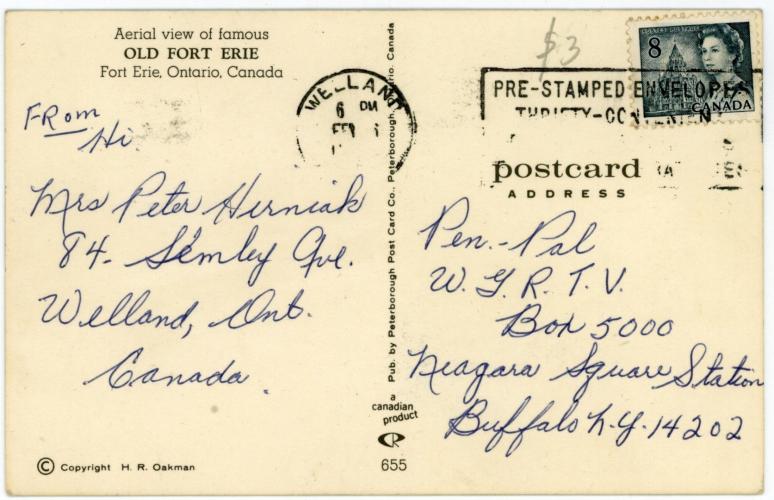 Aerial view of famous
OLD FORT ERIE
Fort Erie, Ontario, Canada
From
Hi
Mrs Peter Hirniak
84- Semley Ave.
Welland, Ont.
Canada
© Copyright H. R. Oakman
WELLAND
6 PM
Pub. by Peterborough Post Card Co., Peterborough, Ontario. Canada
a
canadian
product
655
$3
8
CANADA
PRE-STAMPED ENVELOPES
THRIFTY-CONVENIENT
postcard
ADDRESS
Pen.-Pal
W. G. R. T. V.
Box 5000
Niagara Square Station
Buffalo N.Y. 14202